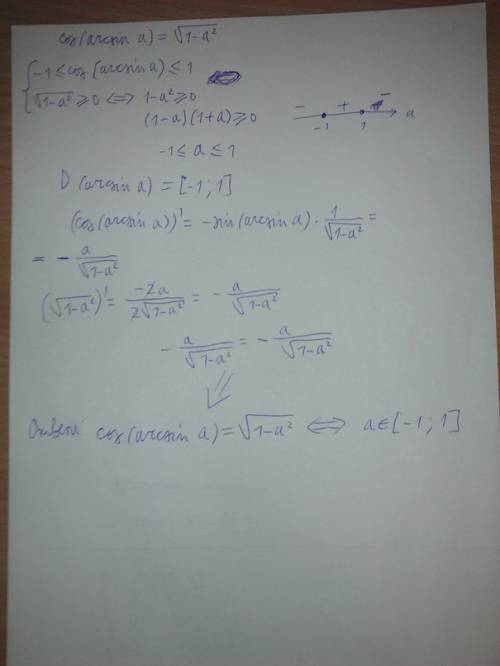 cos(arcsin a) = √(1-a²)
{ -1 ≤ cos(arcsin a) ≤ 1
{ √(1-a²) ≥ 0 ⟺ 1-a² ≥ 0
(1-a)(1+a) ≥ 0
- + -
-1 1 a
-1 ≤ a ≤ 1
D(arcsin a) = [-1; 1]
(cos(arcsin a))' = -sin(arcsin a) · 1/√(1-a²) =
= - a/√(1-a²)
(√(1-a²))' = -2a/(2√(1-a²)) = - a/√(1-a²)
- a/√(1-a²) = - a/√(1-a²)
⇓
Ответ cos(arcsin a) = √(1-a²) ⟺ a ∈ [-1; 1]